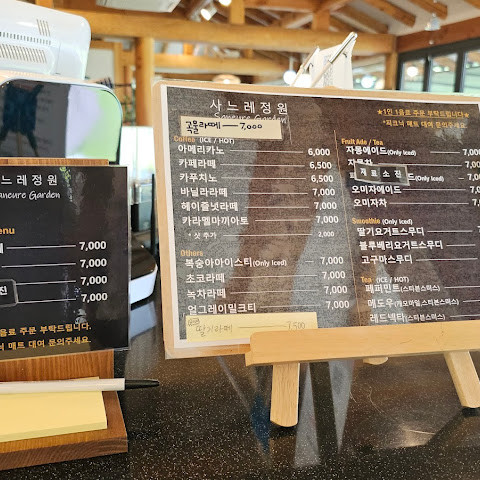 사느레정원
Saneure Garden
곡물라떼 — 7,000
★1인 1음료 주문 부탁드립니다★
*피크닉 매트 대여 문의주세요.
Coffee (ICE / HOT)
아메리카노 6,000
카페라떼 6,500
카푸치노 6,500
바닐라라떼 7,000
헤이즐넛라떼 7,000
카라멜마끼아또 7,000
* 샷 추가 2,000
Others
복숭아아이스티(Only Iced) 7,000
초코라떼 7,000
녹차라떼 7,000
얼그레이밀크티 7,000
딸기라떼 7,500
Fruit Ade / Tea
자몽에이드(Only Iced) 7,000
자몽차 7,00
재료소진
d) 7,00
오미자에이드(Only Iced) 7,00
오미자차 7,00
Smoothie (Only Iced)
딸기요거트스무디 7
블루베리요거트스무디
고구마스무디
Tea (ICE / HOT)
페퍼민트(스티븐스미스)
메도우(캐모마일,스티븐스미스)
레드넥타(스티븐스미스)
느레정원
aneure Garden
enu
7,000
7,000
7,000
진
7,000
음료 주문 부탁드립니다.
닉 매트 대여 문의주세요.